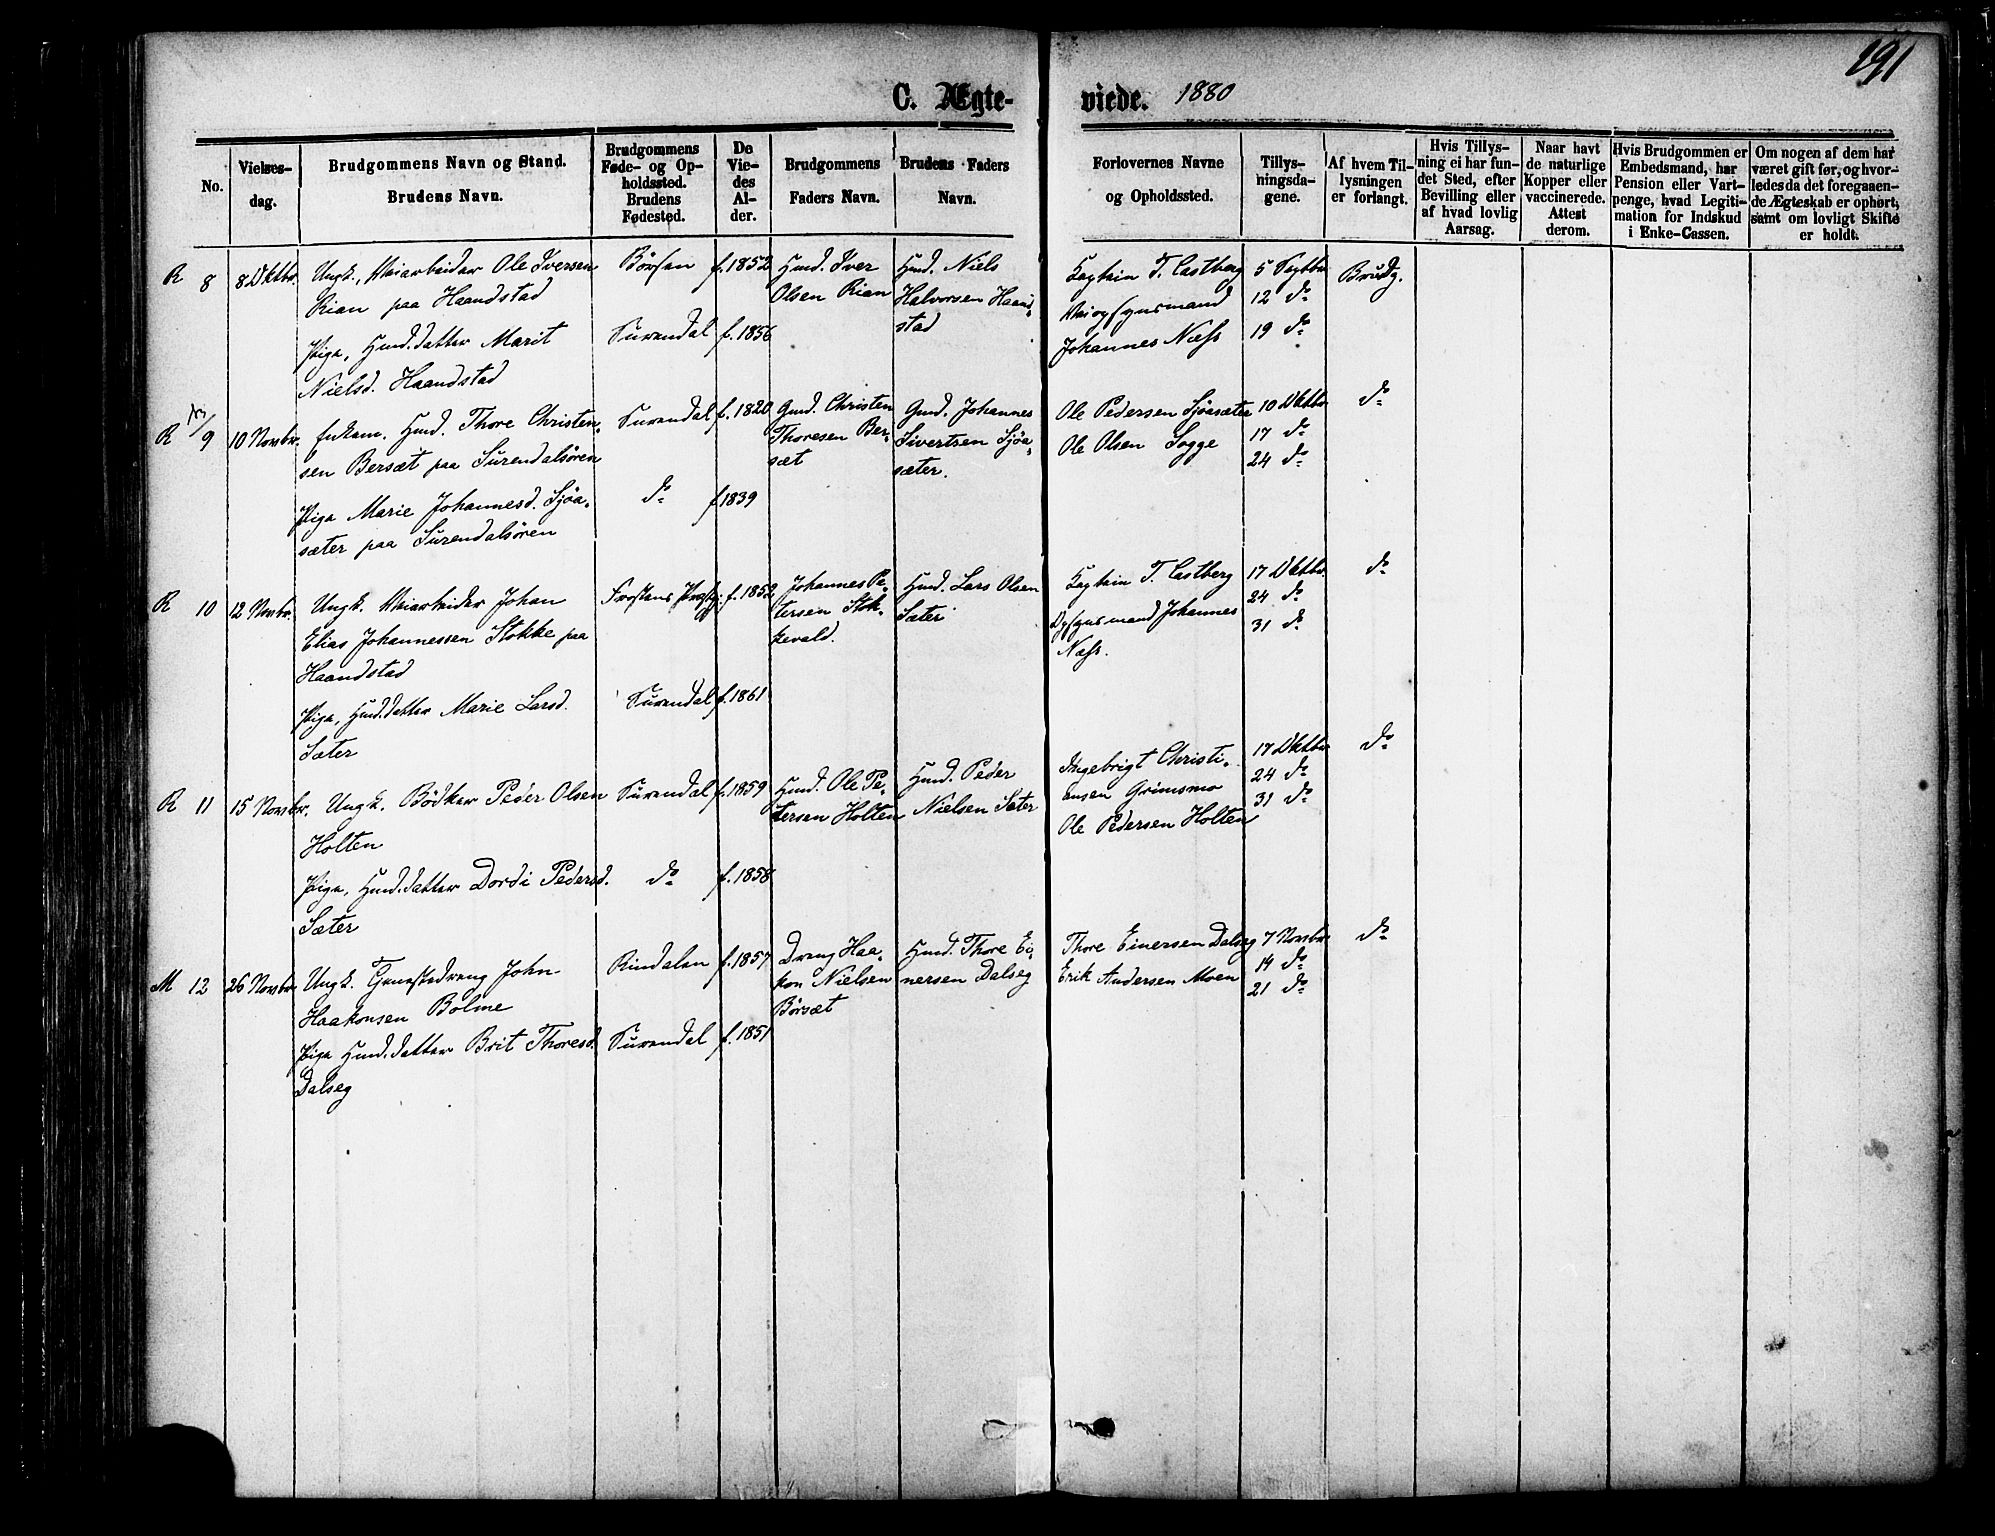 191
C. Ægte- viede. 1880
No.
Vielses-
dag.
Brudgommens Navn og Stand.
Brudens Navn.
Brudgommens
Føde- og Op-
holdssted.
Brudens
Fødested.
De
Vie-
des
Al-
der.
Brudgommens
Faders Navn.
Brudens Faders
Navn.
Forlovernes Navne
og Opholdssted.
Tillys-
ningsda-
gene.
Af hvem Til-
lysningen
er forlangt.
Hvis Tillys-
ning ei har fun-
det Sted, efter
Bevilling eller
af hvad lovlig
Aarsag.
Naar havt
de naturlige
Kopper eller
vaccinerede.
Attest
derom.
Hvis Brudgommen er
Embedsmand, har
Pension eller Vart-
penge, hvad Legiti-
mation for Indskud
i Enke-Cassen.
Om nogen af dem har
været gift før, og hvor-
ledes da det foregaaen-
de Ægteskab er ophørt,
samt om lovligt Skifte
er holdt.
R 8
8 Oktbr.
Ungk., Veiarbeider Ole Iversen
Rian paa Haandstad
Pige, Gmd.datter Marit
Nielsd. Haandstad
Börsen
Surendal
f. 1852
f. 1856
Gmd. Iver
Olsen Rian
Gmd. Niels
Halvorsen Haand-
stad
Kaptain T. Castberg
Veiopsynsmand
Johannes Næss
5 Septbr
12 do
19 do
Brudg.
R 9
10 Novbr.
Enkem. Gmd. Thore Christen-
sen Bersæt paa Surendalsören
Pige Marie Johannesd. Sjöa-
sæter paa Surendalsören
Surendal
do
f. 1820
f 1839
Gmd. Christen
Thoresen Ber-
sæt
Gmd. Johannes
Sivertsen Sjöa-
sæter.
Ole Pedersen Sjöasæter
Ole Olsen Sogge
10 Oktbr
17 do
24 do
do
R 10
12 Novbr.
Ungk. Veiarbeider Johan
Elias Johannessen Stokke paa
Haandstad
Pige, Gmd.datter Marie Larsd.
Sæter
Frostens Præstgj.
Surendal
f. 1852
f. 1861
Johannes Pe-
tersen Stok-
kevald.
Gmd. Lars Olsen
Sæter
Kaptain T. Castberg
Opsynsmand Johannes
Næss.
17 Oktbr.
24 do
31 do
do
R 11
15 Novbr.
Ungk. Bödker Peder Olsen
Holten
Pige, Gmd.datter Dordi Pedersd.
Sæter
Surendal
do
f. 1859
f. 1858
Gmd. Ole Pe-
tersen Holten
Gmd. Peder
Nielsen Sæter
Ingebrigt Christi-
ansen Grimsmo
Ole Pedersen Holten
17 Oktbr
24 do
31 do
do
M 12
26 Novbr
Ungk. Tjenestedreng John
Haakonsen Bolme
Pige Gmd.datter Brit Thoresd.
Dalseg
Rindalen
Surendal
f. 1857
f. 1851
Dreng Haa-
kon Nielsen
Börsæt
Gmd. Thore Ei-
nersen Dalseg
Thore Einersen Dalseg
Erik Andersen Moen
7 Novbr
14 do
21 do
do